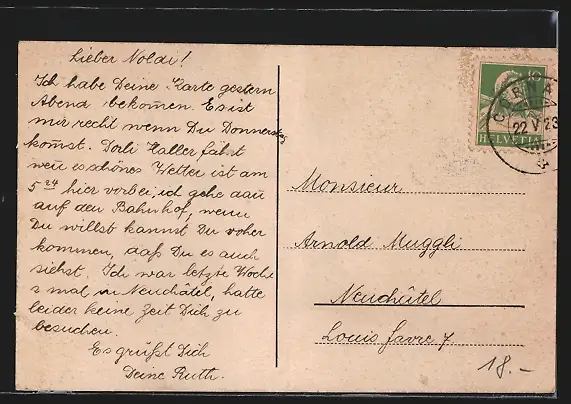 Lieber Noldi!
Ich habe Deine Karte gestern
Abend bekomen. Es ist
mir recht wenn Du Donnerstag
komst. Dorli Haller fährt
wen es schönes Wetter ist am
5 24 hier vorbei, ich gehe dan
auf den Bahnhof, wenn
Du willst kannst Du voher
kommen, daß Du es auch
siehst. Ich war letzte Woche
2 mal in Neuchâtel, hatte
leider keine Zeit Dich zu
besuchen.
Es grüßt Dich
Deine Ruth.
22 V 23
HELVETIA
Monsieur
Arnold Muggli
Neuchâtel
Louis favre 7
18.-